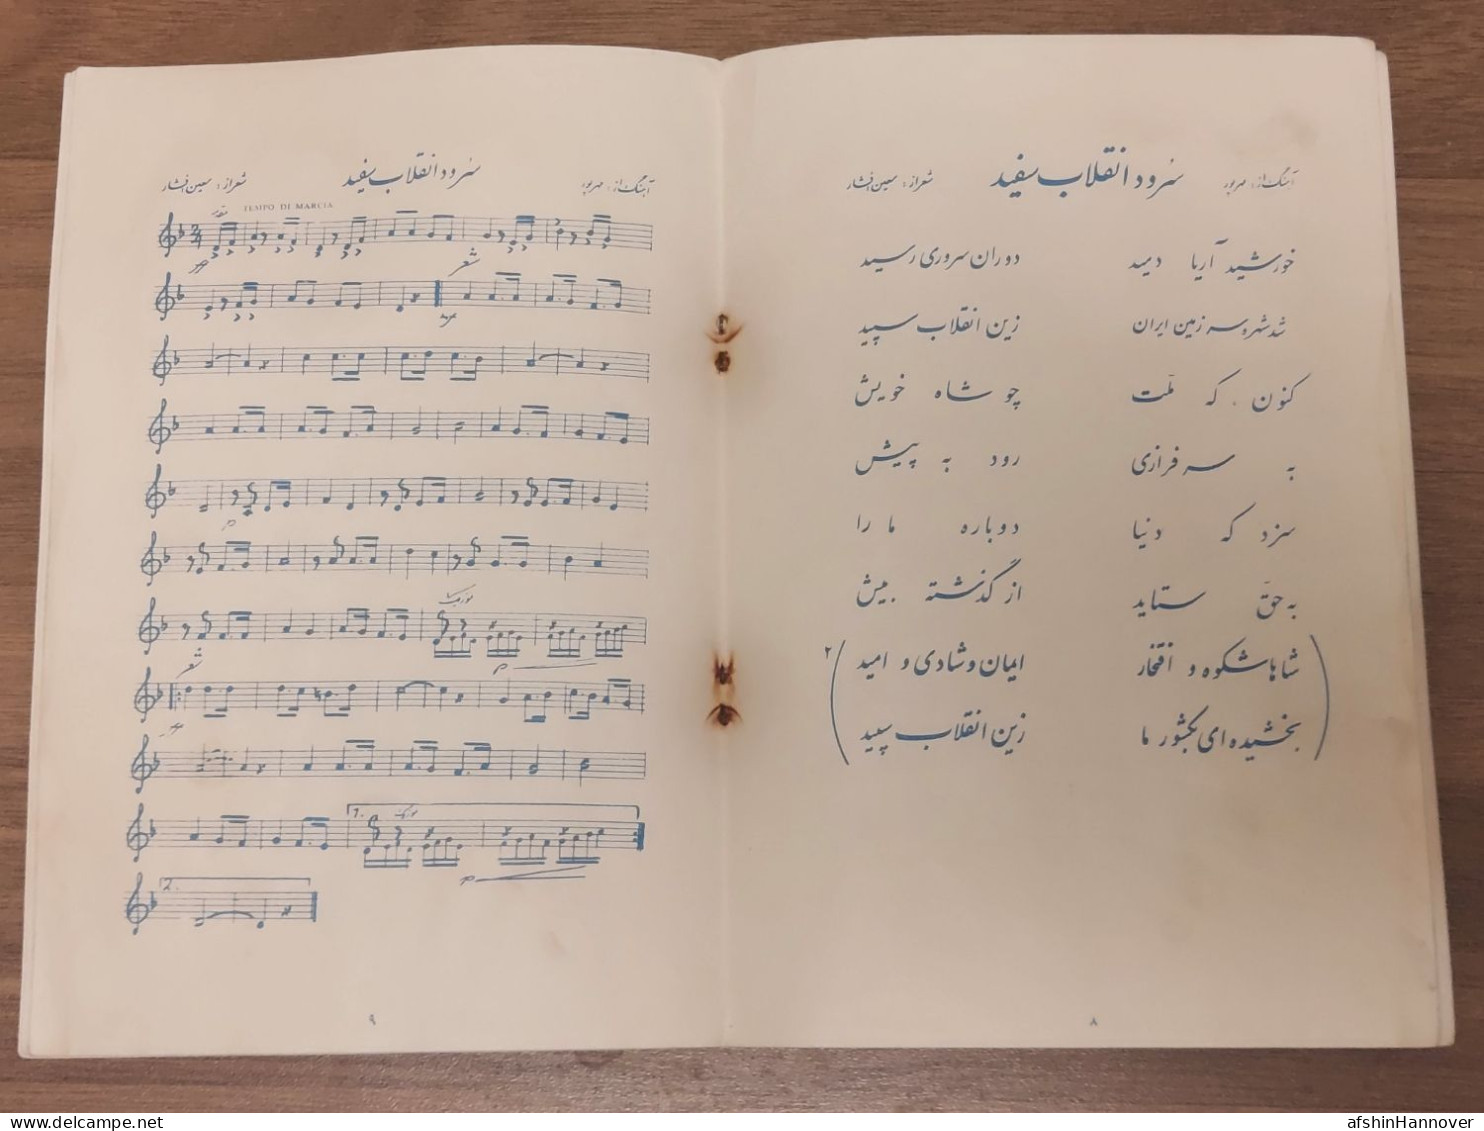 سرود انقلاب سفید
آهنگ از: مهرپور
شعر از: معین افشار
خورشید آریا دمید دوران سروری رسید
شد شهره سرزمین ایران زین انقلاب سپید
کنون که ملت چو شاه خویش
به سرفرازی رود به پیش
سزد که دنیا دوباره ما را
به حق ستاید از گذشته بیش
شاها شکوه و افتخار ایمان و شادی و امید ۲
بخشیده‌ای بکشور ما زین انقلاب سپید
۸
سرود انقلاب سفید
آهنگ از: مهرپور
شعر از: معین افشار
TEMPO DI MARCIA
مقدمه
شعر
شعر
1.
2.
۹
afshinHannover